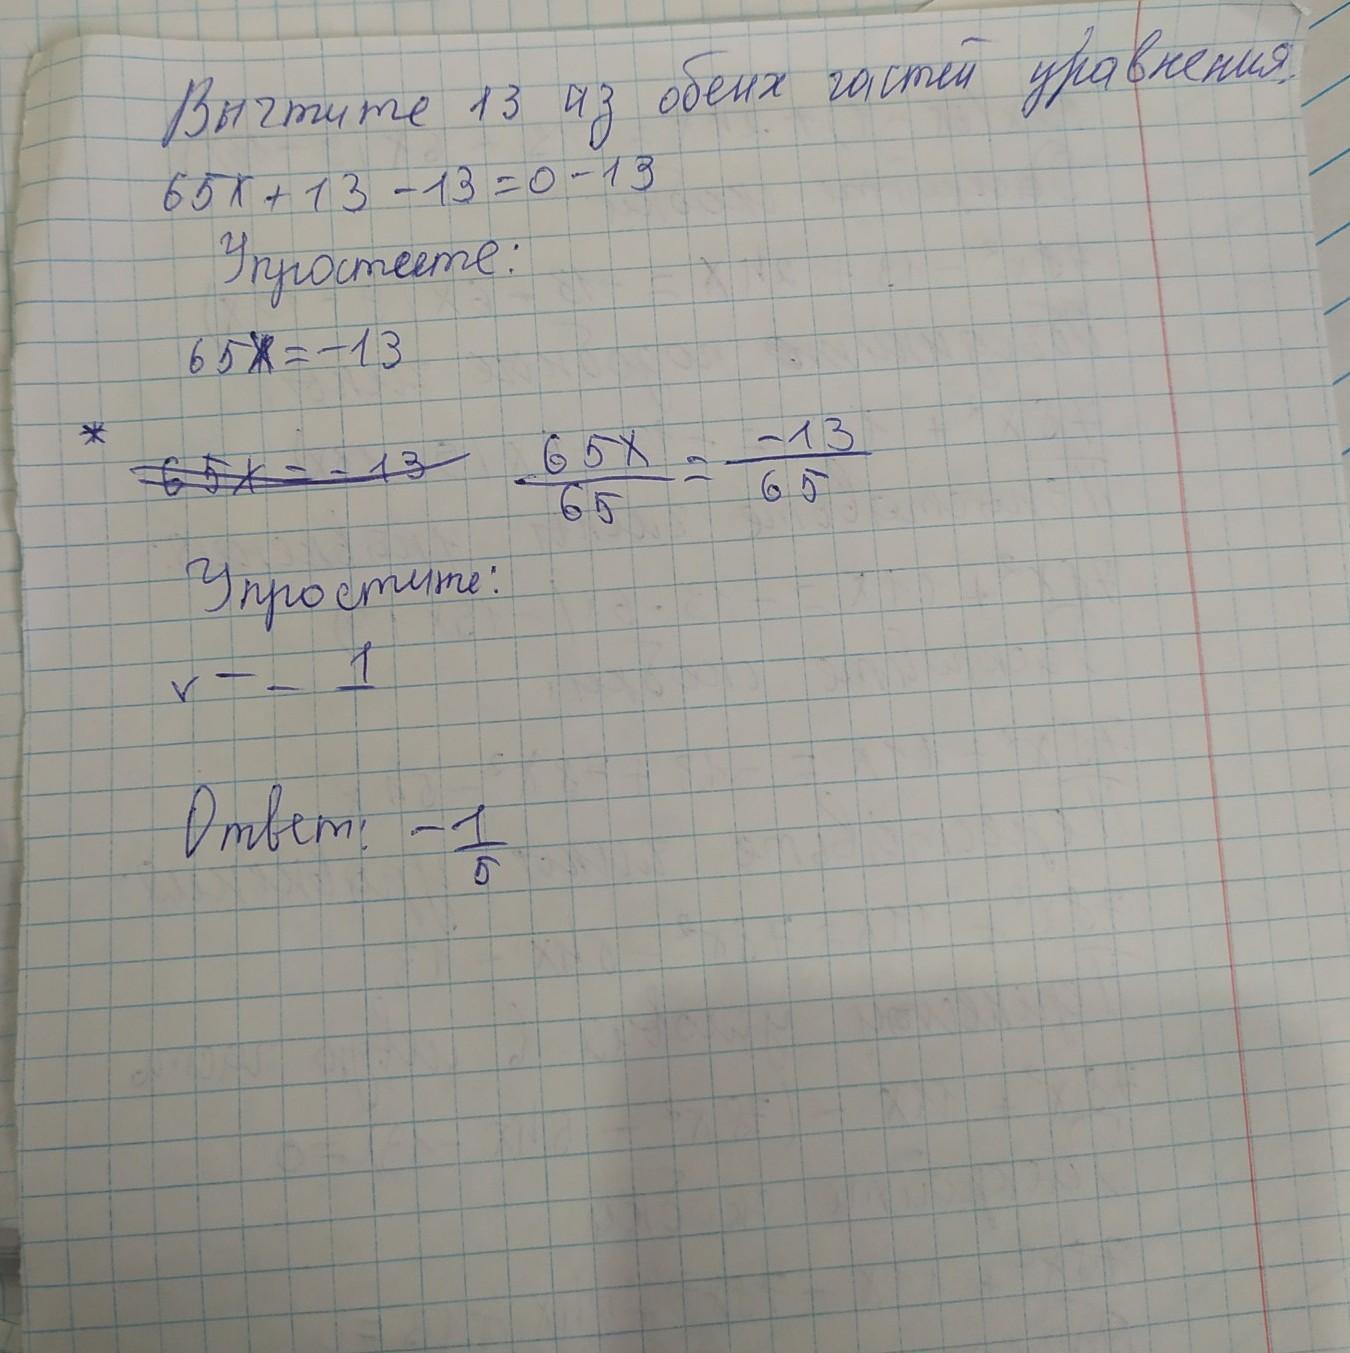 Вычтите 13 из обеих частей уравнения.
65x + 13 - 13 = 0 - 13
Упростите:
65x = -13
* 65x = -13 65x/65 = -13/65
Упростите:
- 1
Ответ: - 1/5